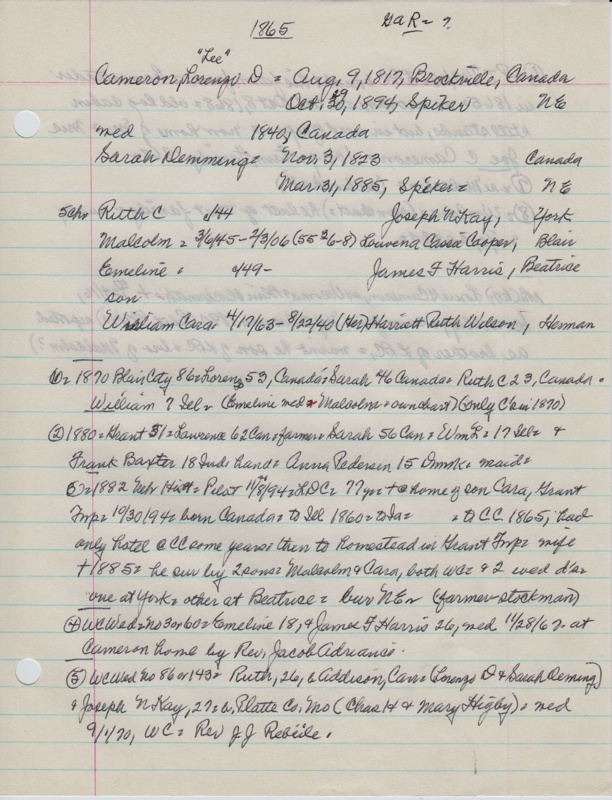 1865 GaR = ?
"Lee"
Cameron, Lorenzo D = Aug, 9, 1817, Brockville, Canada
Oct, 30, 1894, Spiker NE
med 1840, Canada
Sarah Demming = Nov. 3, 1823 Canada
Mar. 31, 1885, Spiker = NE
5 chr Ruth C c/44 Joseph N Kay, York
Malcolm = 3/6/45 - 2/3/06 (55 2 6-8) Louvena Cassa Cooper, Blair
Emeline = c/49 - James F Harris, Beatrice
son
William Cara = 4/17/63 - 8/22/40 (Her) Harriett Ruth Wilson, Herman
1870 Blair City 86 = Lorenz 53, Canada = Sarah 46 Canada = Ruth C 23, Canada =
William 7 Ill = (Emeline med & Malcolm = own chart) (only C's in 1870)
(2) 1880 = Grant 51 = Lawrence 62 Can = farmer = Sarah 56 Can = Wm L = 17 Ill = &
Frank Baxter 18 Ind = hand = Anna Pedersen 15 Dnmk = maid =
1882 Nebr Hist = Pilot 11/8/94 = LDC = 77 yr = + @ home of son Cara, Grant
Twp = 10/30/94 = born Canada = to Ill 1860 = to Ia = = to CC 1865, had
only hotel @ CC some years = then to homestead in Grant Twp = wife
+ 1885 = he sur by 2 sons = Malcolm & Cara, both WC = & 2 wed d's =
one at York = other at Beatrice = bur NE (farmer-stockman)
(4) WC Wed = No 3 or 60 = Emeline 18, & James F Harris 26, med 11/28/67 = at
Cameron home by Rev. Jacob Adriance.
(5) WC Wed No 86 or 143 = Ruth, 26, b Addison, Can = (Lorenzo D & Sarah Deming)
& Joseph N Kay, 27 = b. Platte Co. Mo (Chas H & Mary Higby) = med
9/1/70, WC = Rev J J Rebeile.